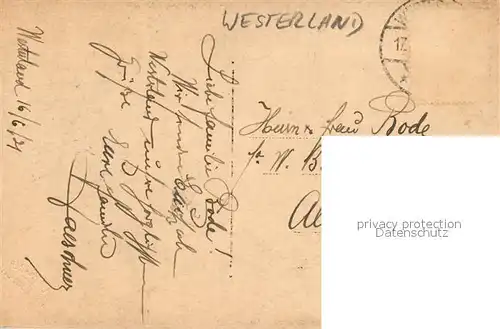 WESTERLAND
Westerland 16/6/21
Liebe Familie Bode!
Wir senden Euch aus
Westerland unsre herzlichsten
Grüße
Eure Familie
Herrn & Frau Bode
W. B
privacy protection
Datenschutz